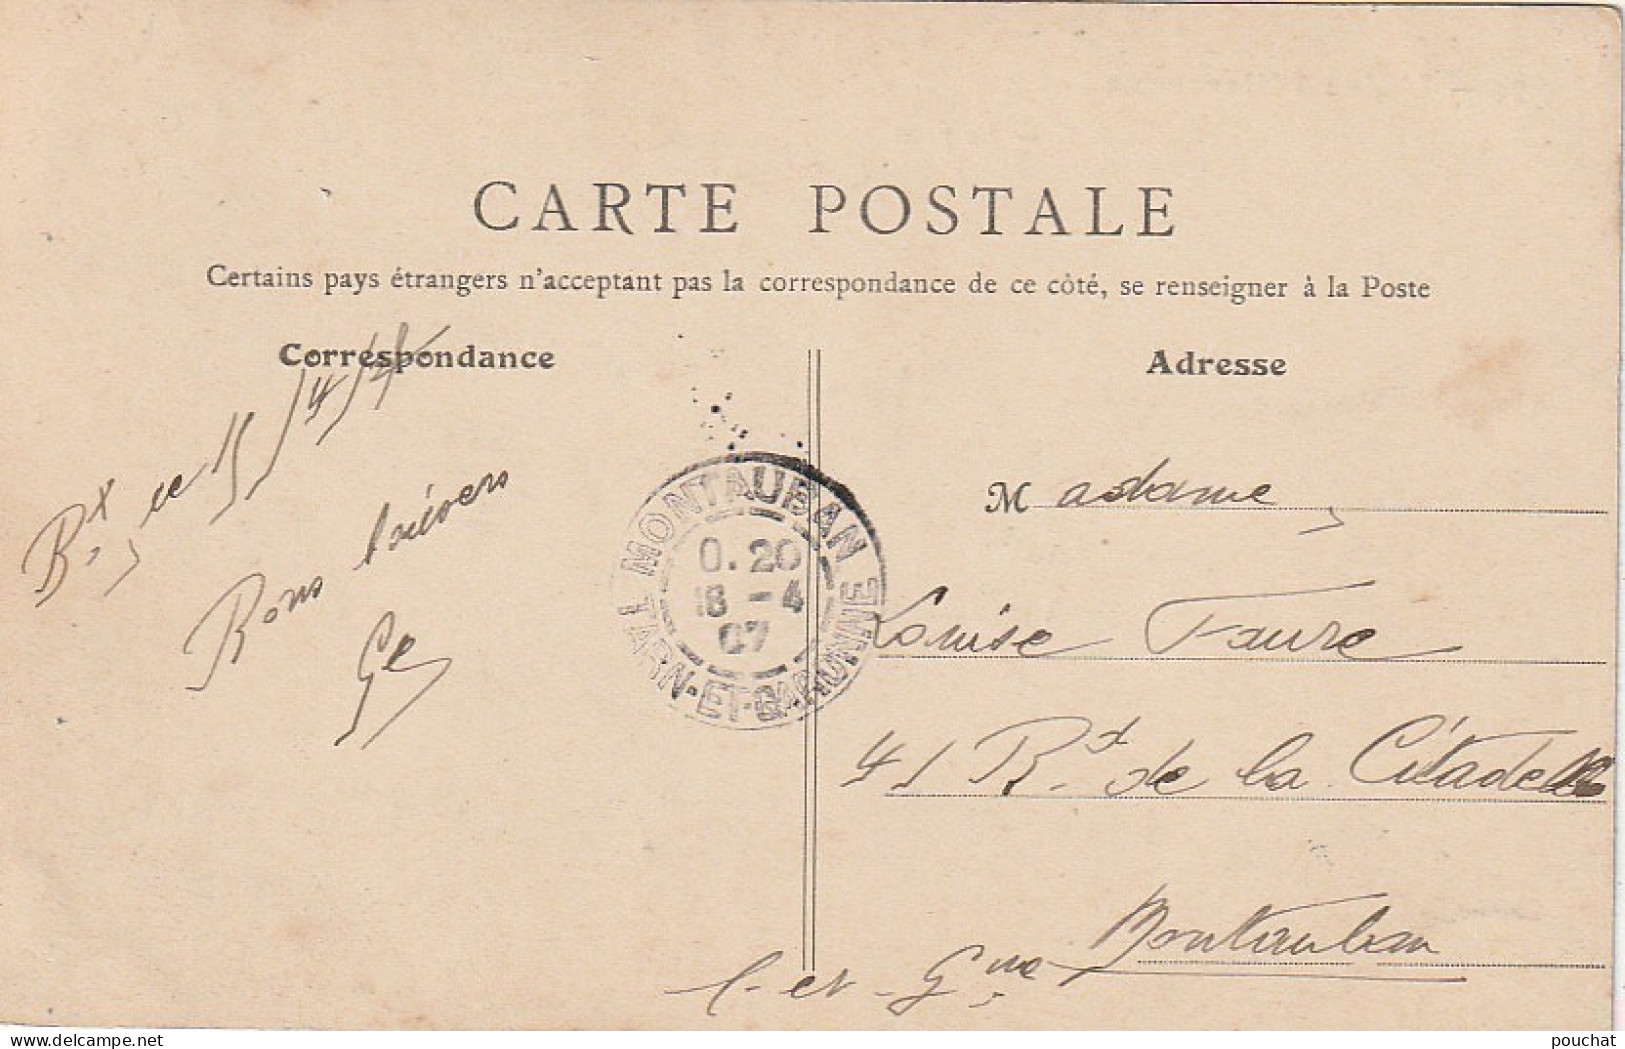 CARTE POSTALE
Certains pays étrangers n'acceptant pas la correspondance de ce côté, se renseigner à la Poste
Correspondance
Adresse
Bx, ce 15/4/7
Bons baisers
Ge
MONTAUBAN
0.20
18 - 4
07
TARN-ET-GARONNE
Madame
Louise Faure
41 Rt de la Citadelle
Montauban
T-et-Gne
delcampe.net
pouchat